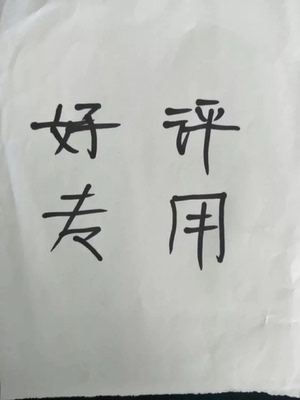 好评
专用